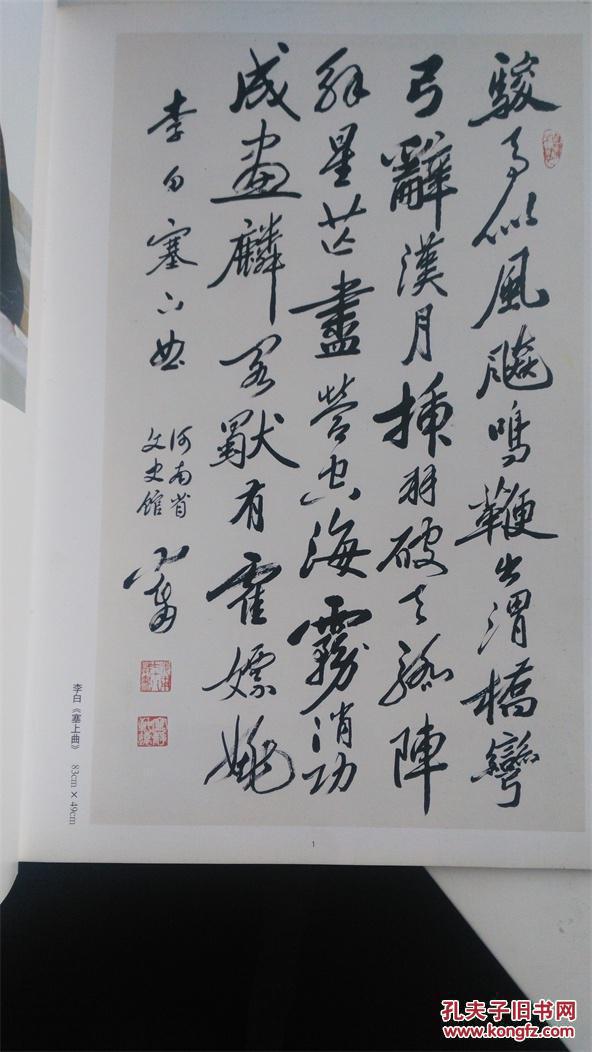 駿馬似風飈鳴鞭出渭橋彎
弓辭漢月插羽破天驕陣
解星芒盡營空海霧消功
成畫麟閣獨有霍嫖姚
李白塞下曲
河南省
文史館
李白《塞上曲》 83cm×49cm
1
孔夫子旧书网
www.kongfz.com